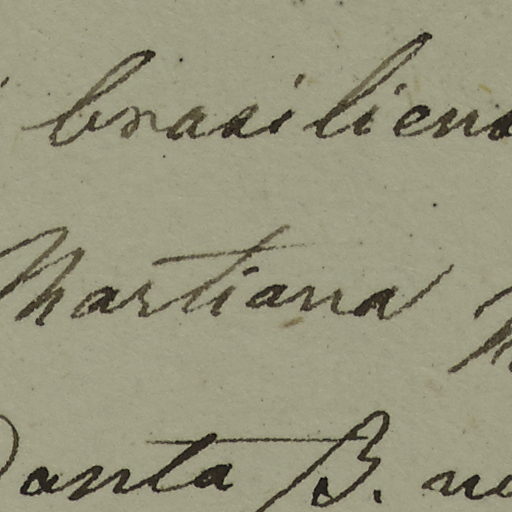 brasiliens
Martiana
Santa B. no